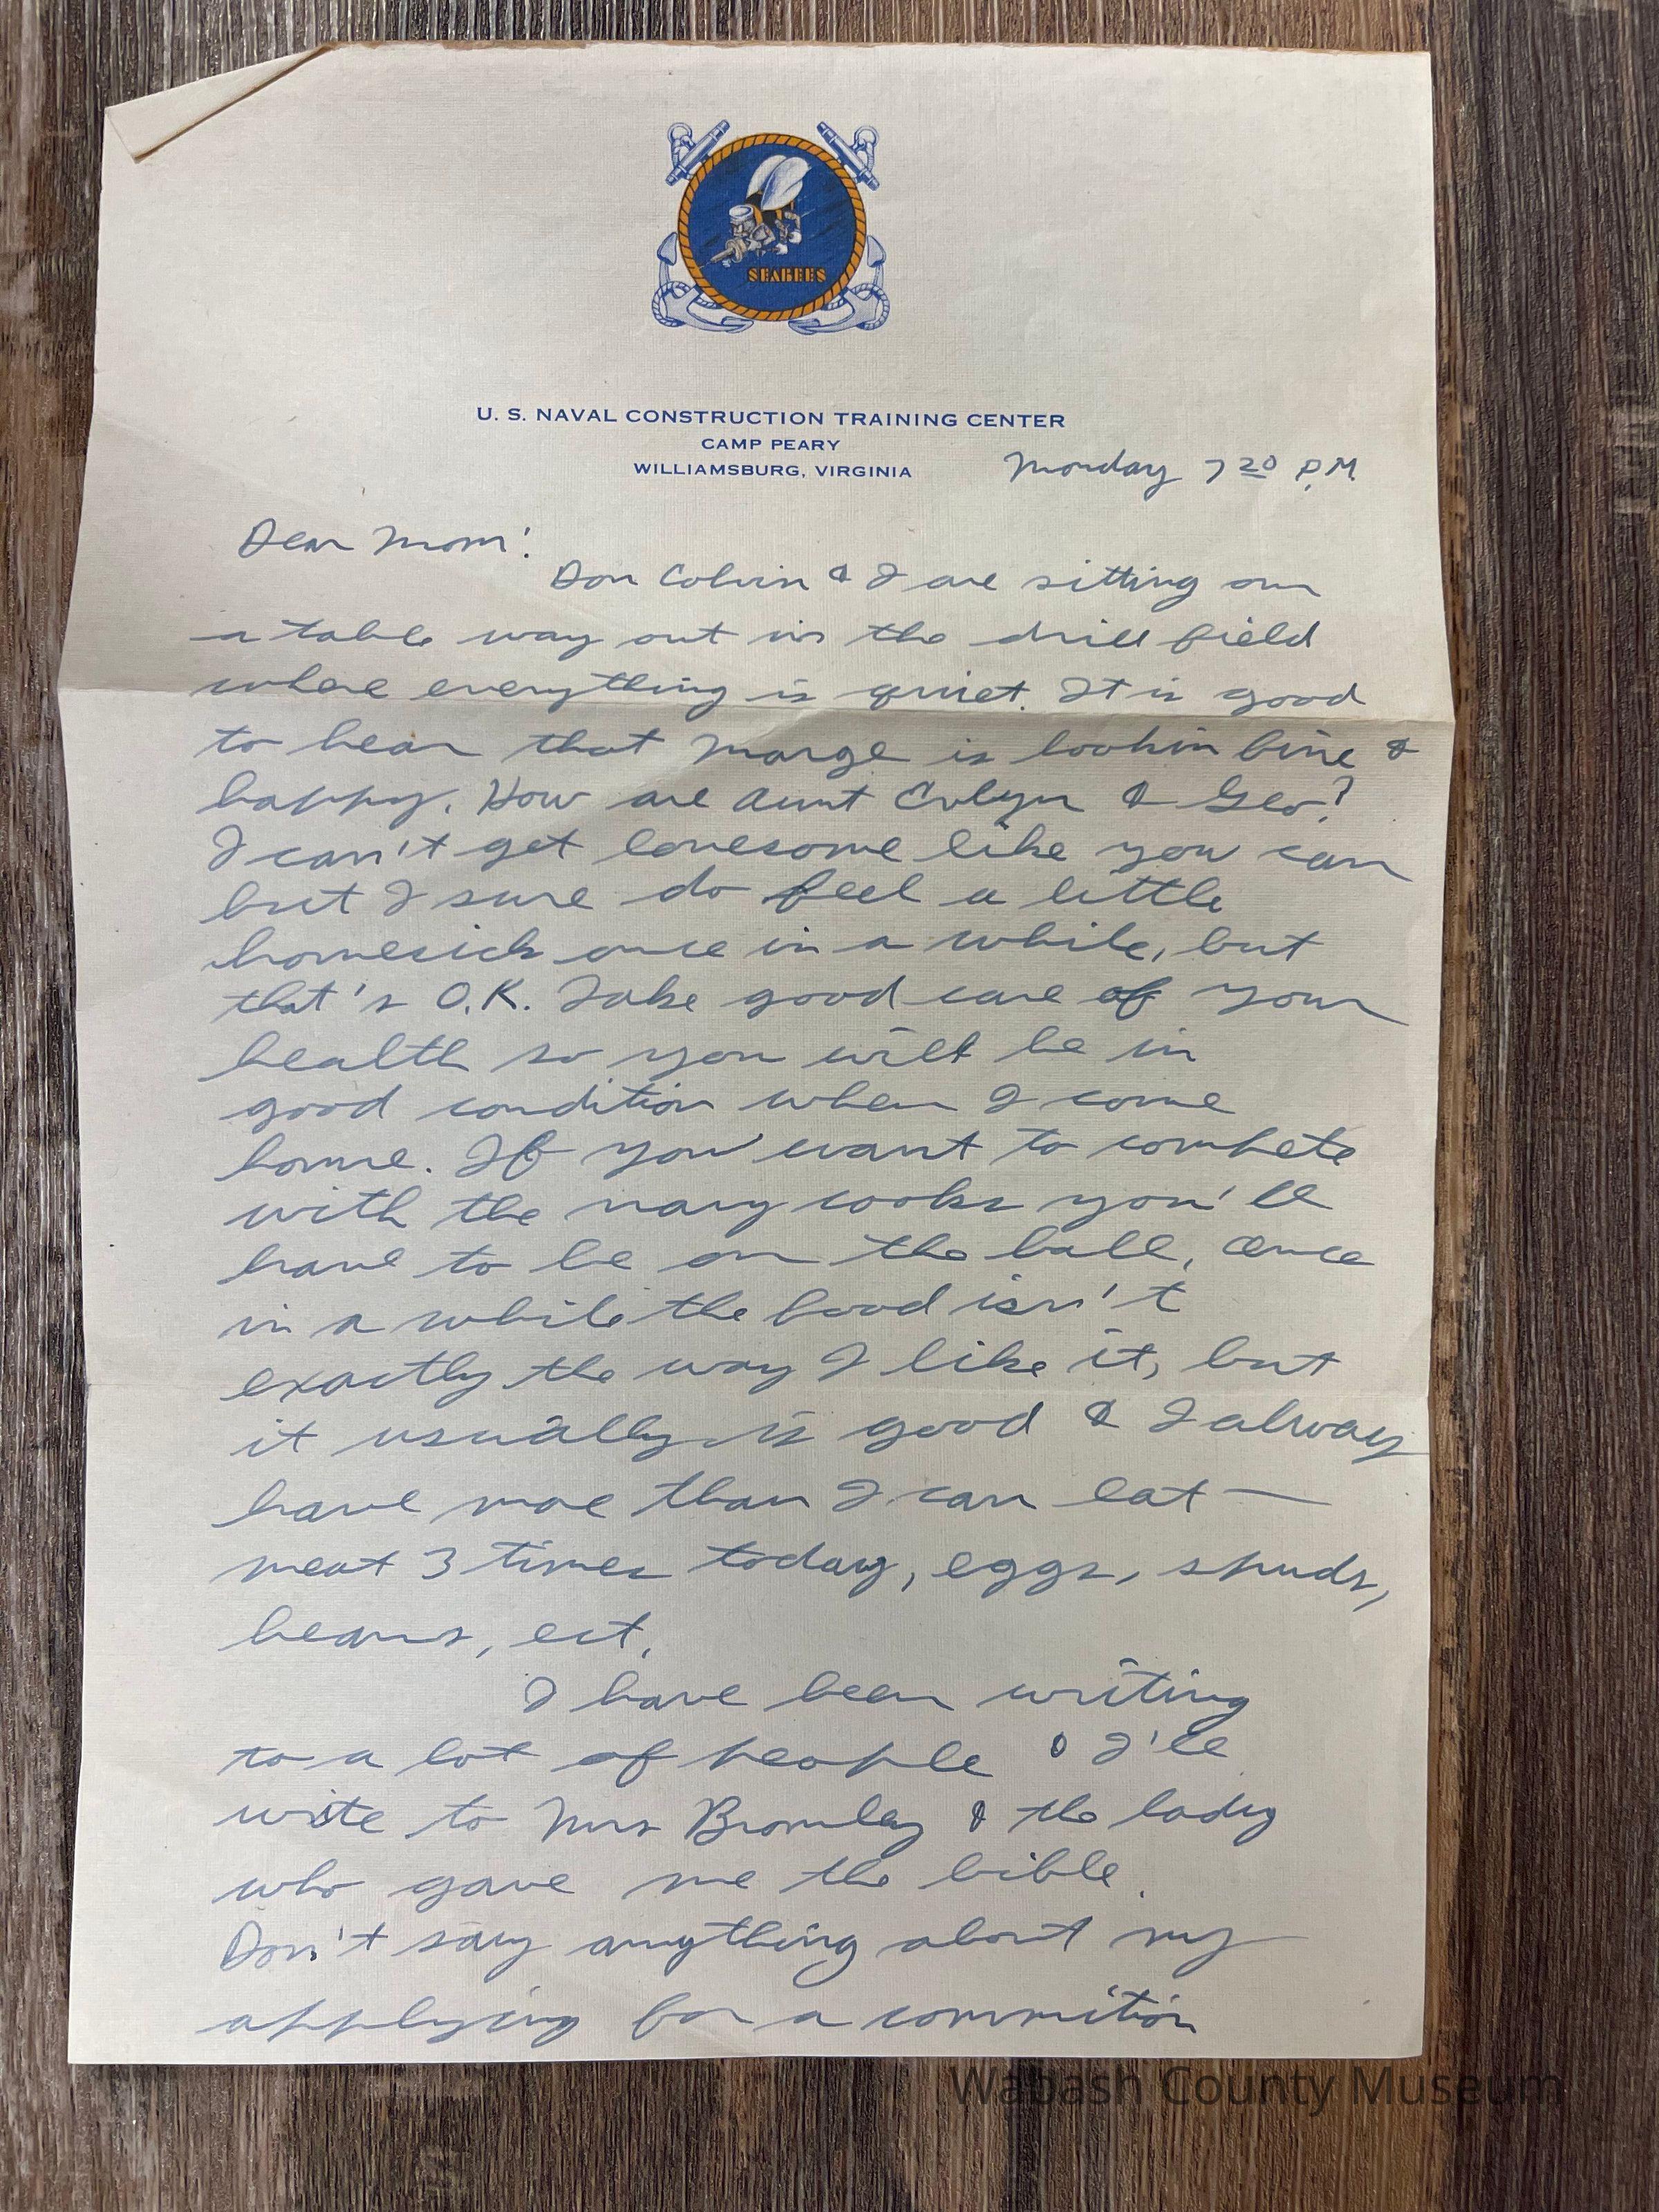 SEABEES
U. S. NAVAL CONSTRUCTION TRAINING CENTER
CAMP PEARY
WILLIAMSBURG, VIRGINIA
Monday 7 20 P.M.
Dear Mom:
Don Colvin & I are sitting on
a table way out in the drill field
where everything is quiet. It is good
to hear that Marge is lookin fine &
happy. How are Aunt Evlyn & Geo?
I can't get lonesome like you can
but I sure do feel a little
homesick once in a while, but
that's O.K. Take good care of your
health so you will be in
good condition when I come
home. If you want to compete
with the navy cooks you'll
have to be on the ball. Once
in a while the food isn't
exactly the way I like it, but
it usually is good & I always
have more than I can eat —
meat 3 times today, eggs, spuds,
beans, ect.
I have been writing
to a lot of people & I'll
write to Mrs Bromley & the lady
who gave me the bible.
Don't say anything about my
applying for a commition
Wabash County Museum